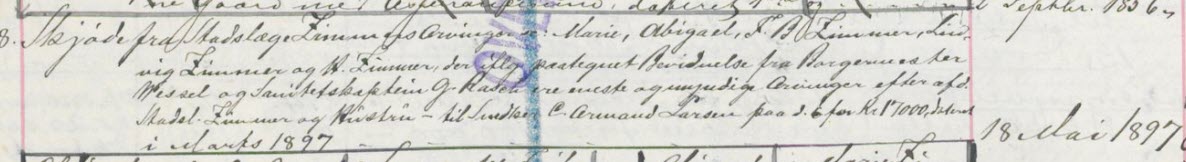 Gaard med
8. Skjöde fra Stadslæge Zimmers Arvinger: Marie, Abigael, F. B. Zimmer, Lud-
vig Zimmer og W. Zimmer, der iflg. paategnet Bevidnelse fra Borgermester
Wessel og Sanitetskaptein G. Rasch ere eneste og myndige Arvinger efter afd.
Stadsl. Zimmer og Hustru - til C. Armand Larsen paa d. E. for Kr 17000, dateret
i Marts 1897
18 Mai 1897